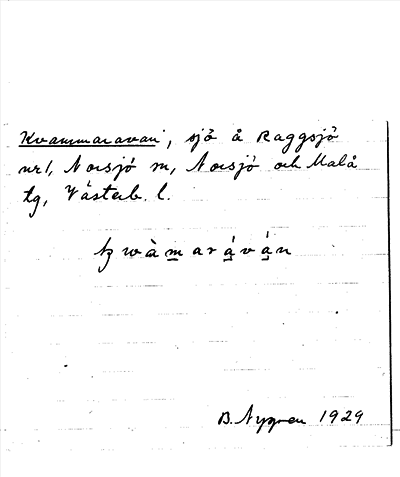 Kvammaravan, sjö å Raggsjö
nr1, Norsjö sn, Norsjö och Malå
tg, Västerb. l.
B. Nygren 1929